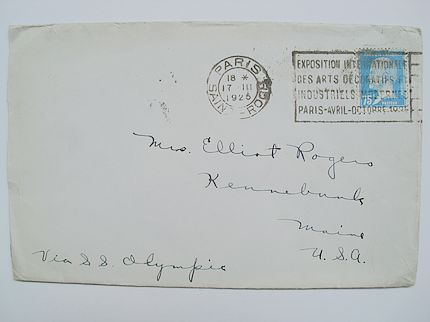 PARIS
18 *
17 - III
1925
EXPOSITION INTERNATIONALE
DES ARTS DÉCORATIFS ET
INDUSTRIELS MODERNES
PARIS-AVRIL-OCTOBRE 1925
75c
Mrs. Elliot Rogers
Kennebunk
Maine
U.S.A.
Via S.S. Olympic